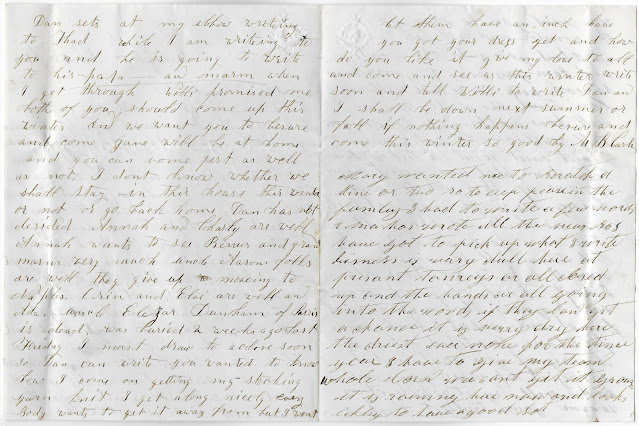 Dan sets at my elbow writeing
to Thad while I am writeing to
you and he is going to write
to his papa and marm when
I get through Willi promised me
both of you should come up this
winter and we want you to besure
and come gane will be at home
and you can come jest as well
as not I dont know whether we
shall stay in this house this winter
or not or go back home Dan has not
desided Annah and Charly are well
Annah wants to see and grand
marm very much uncle Mason folls
are well they give up moveing to
Orin and are well an
dad uncle Dunham of Paris
is dead was buried 2 weeks ago last
Friday I must draw to a close soon
so Dan can write you wanted to know
how I come on getting my stoking
yarn knit I get along nicely every
body wants to get it away from but I wont
let them have an inch have
you got your dress yet and how
do you like it give my love to all
and come and see us this winter write
soon and tell Willi to write Dan an
I shall be down next summer or
fall if nothing happens besure and
come this winter so good by M B
Mary wanted me to
line or two so to keep in the
family I had to write a few words
ma has wrote all the news so I
have got to pick up what I write
is very dull here at
presant is all closed
up and the hands are all going
into the woods if they can get
a chance it is very dry here
the driest ever none for the time
year I have to give my team
whole corn we cant get it ground
it is raining here now and looks
likely to have a good